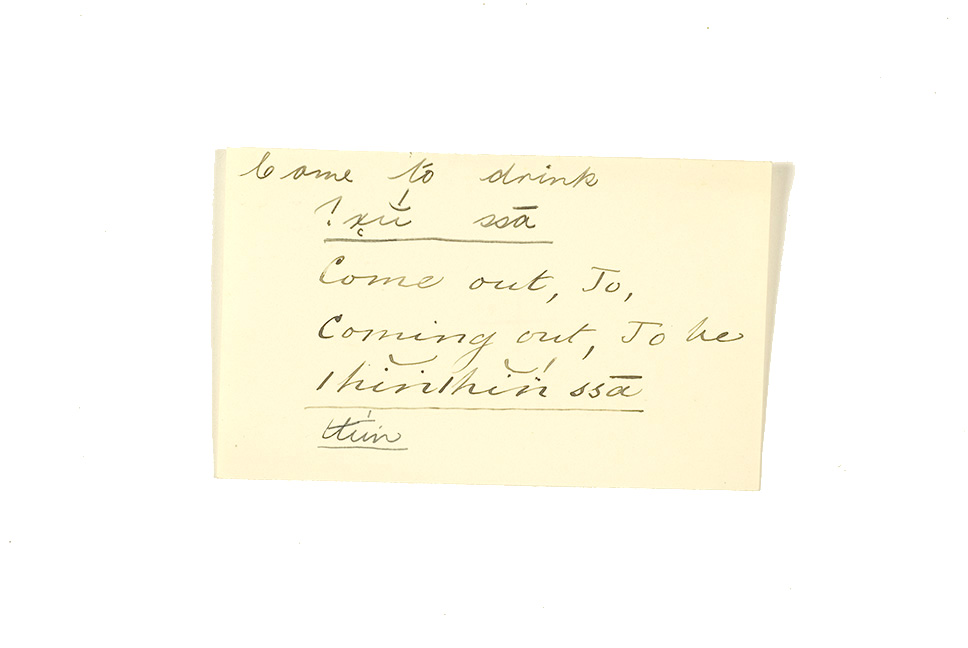 Come to drink
!x̣ŭ́ ssā
Come out, To,
Coming out, To be
|hĭn|hĭń ssā